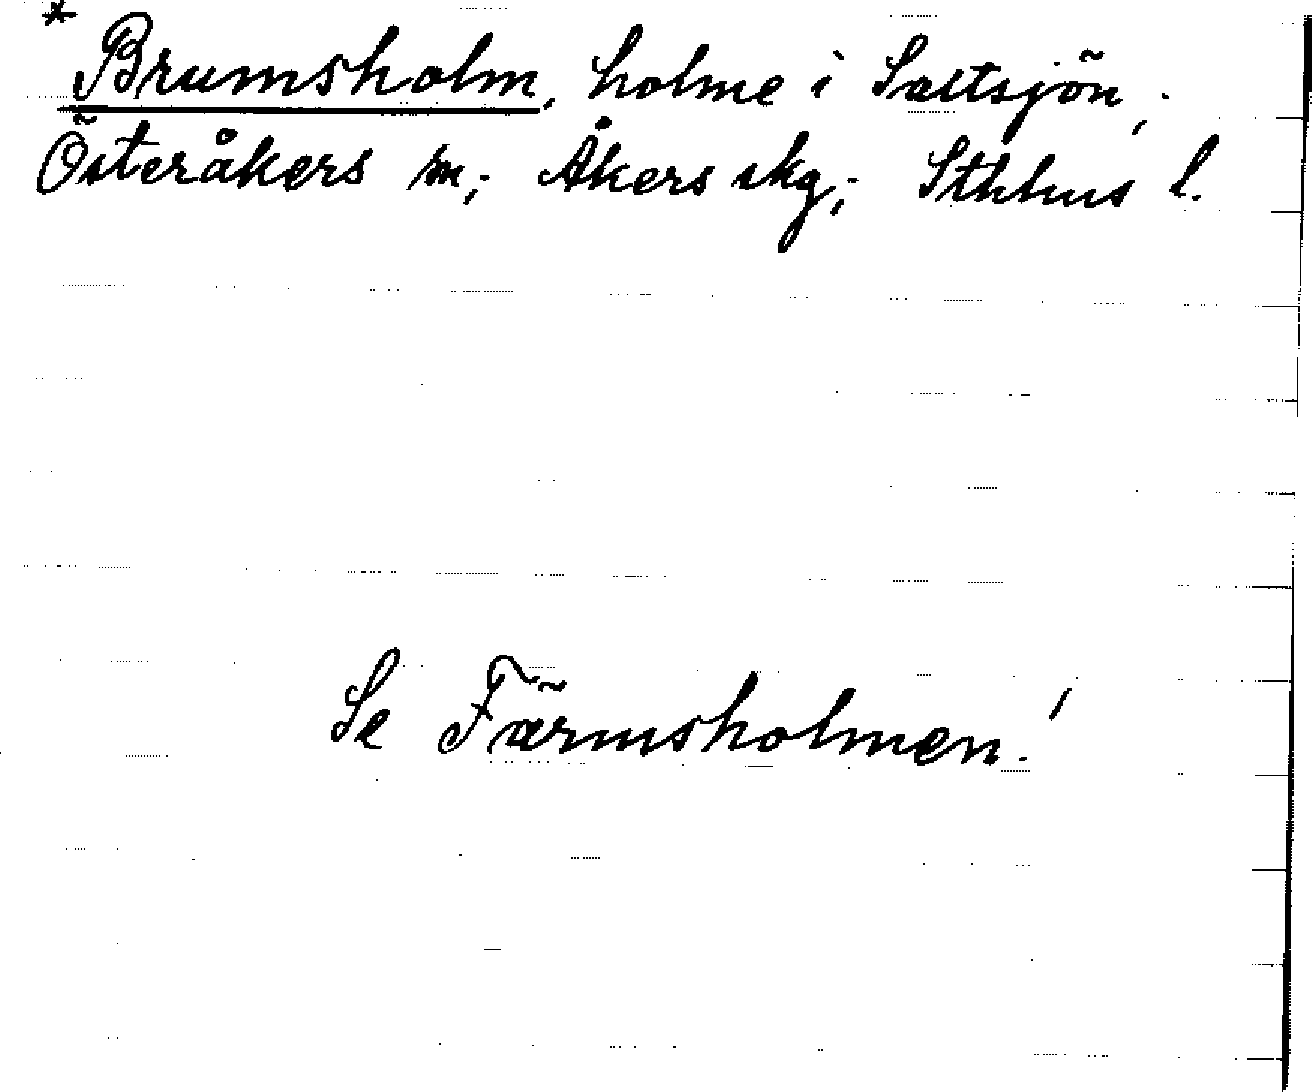 * Brumsholm, holme i Saltsjön,
Österåkers sn; Åkers skg; Sthlms l.
Se Färmsholmen!